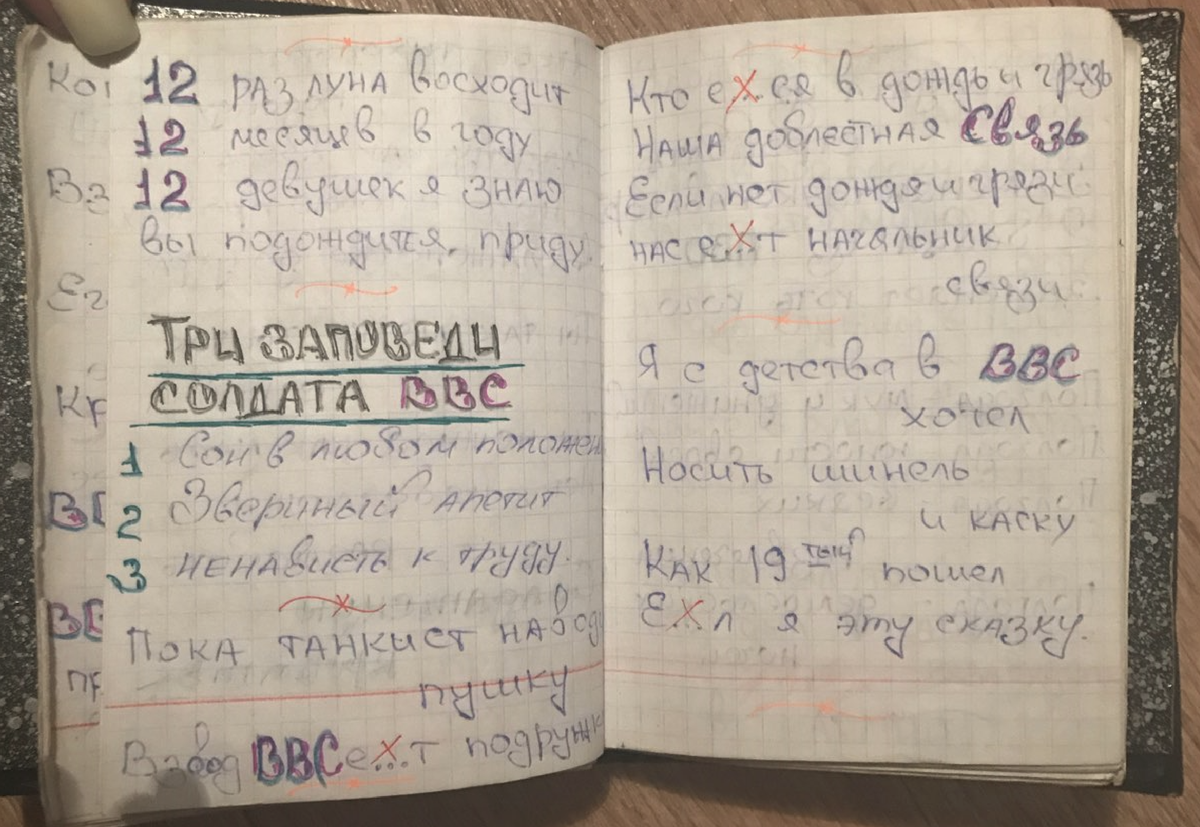 12 раз луна восходит
12 месяцев в году
12 девушек я знаю
вы подождите, приду.
Три заповеди
солдата ВВС
1 Сон в любом положен
2 Звериный апетит
3 ненависть к труду.
Пока танкист наводи
пушку
Взвод ВВС е..х..т подружк
Кто е х ся в дождь и грязь
Наша доблестная Связь
Если нет дождя и грязи
нас е..х..т начальник
связи.
Я с детства в ВВС
хотел
Носить шинель
и каску
Как 19тый пошел
Е..х..л я эту сказку.
Ког
Вз
Ег
Кр
ВВ
ВВ
пр